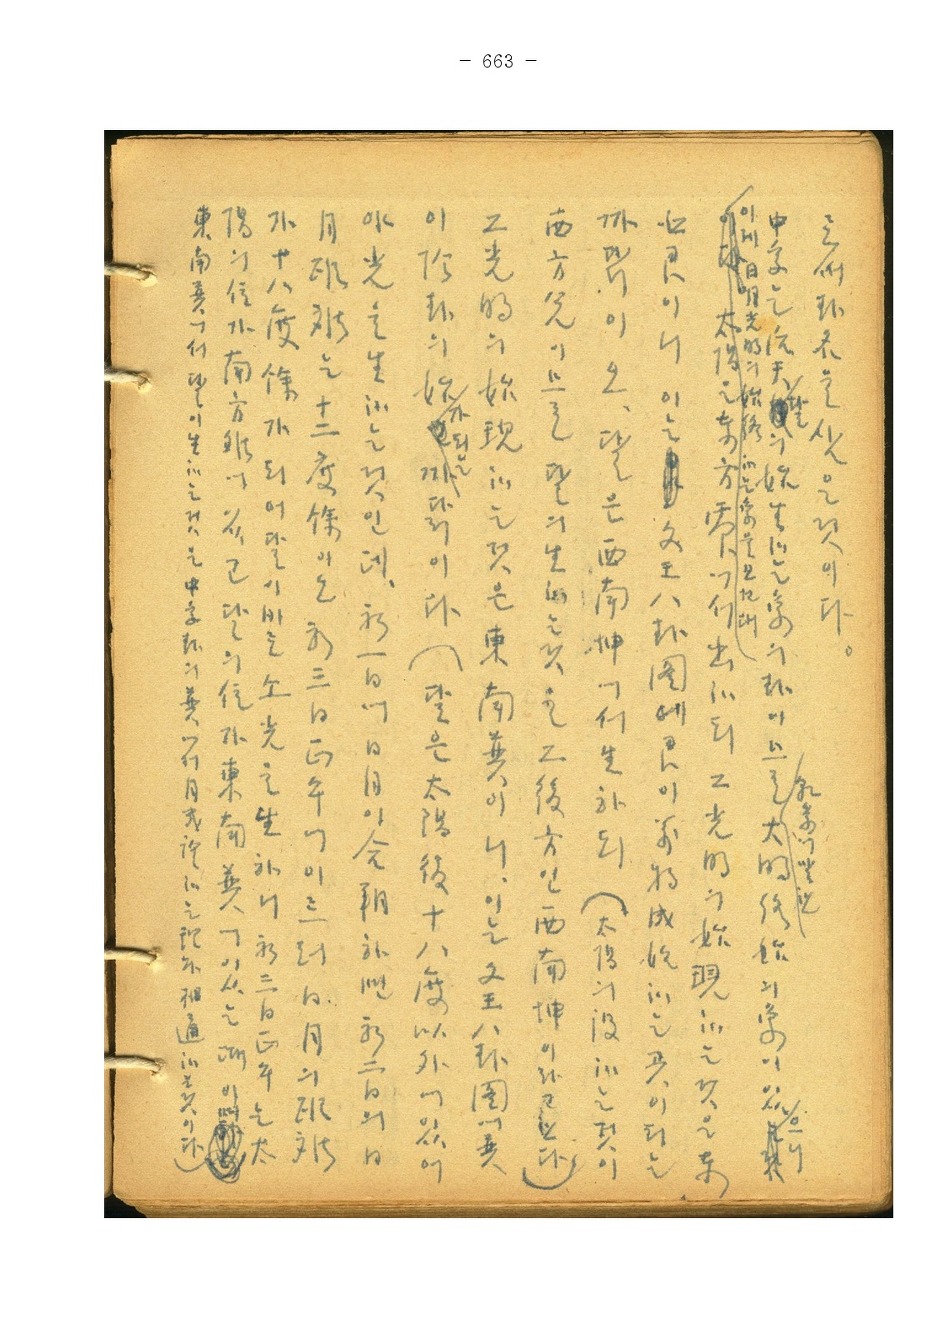 - 663 -
로써 卦名을 삼은 것이다。
中孚는 先天 달의 始生하는 象의 卦이므로 大明終始의 象이 있으니
乾彖에 일월
이제 日月光明의 始終하는 象을 보건대
太陽은 東方震에서 出하되 그 光明의 始現하는 것은 東
北艮이니 이는 文王八卦圖에 艮이 萬物成始하는 곳이 되는
까닭이오, 달은 西南坤에서 生하되 (太陽의 沒하는 곳이
西方兌이므로 달의 生하는 곳은 그 後方인 西南坤이라
그 光明의 始現하는 것은 東南巽이니, 이는 文王八卦圖에 巽
이 陰卦의 始가 되는 까닭이다 (달은 太陽後十八度以外에 있어
야 光을 生하는 것인데, 初一日에 日月이 合朔하면 初二日의 日
月距離는 十二度餘이오 初三日正午에 이르러 日月의 距離
가 十八度餘가 되어 달이 비로소 光을 生하니 初三日正午는 太
陽의 位가 南方離에 있고 달의 位가 東南巽에 있는 때이
東南巽에서 달이 生하는 것은 中孚卦의 巽에서 月 하는 相通하는 것이다)